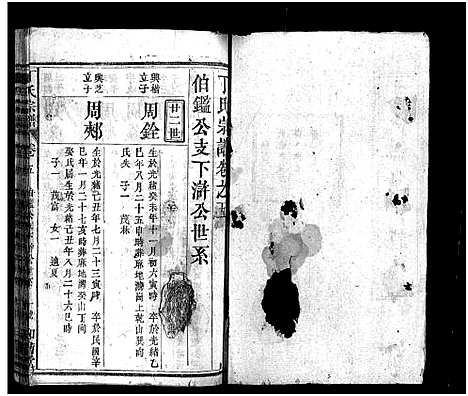 丁氏宗譜卷之五
伯鑑公支下滸公世系
廿二世
興楷立子 周銓
生於光緒癸未年十一月初六寅時 卒於光緒乙
巳年八月二十五申時葬麻地灣崗上乾山巽向
氏失 子一 茂林
興芝立子 周郟
生於光緒己丑年七月二十三寅時 卒於民國辛
巳年一月二十七亥時葬麻地灣癸山丁向
娶氏 居氏生於光緒己丑年八月二十六巳時
子一 茂富 女一 適夏